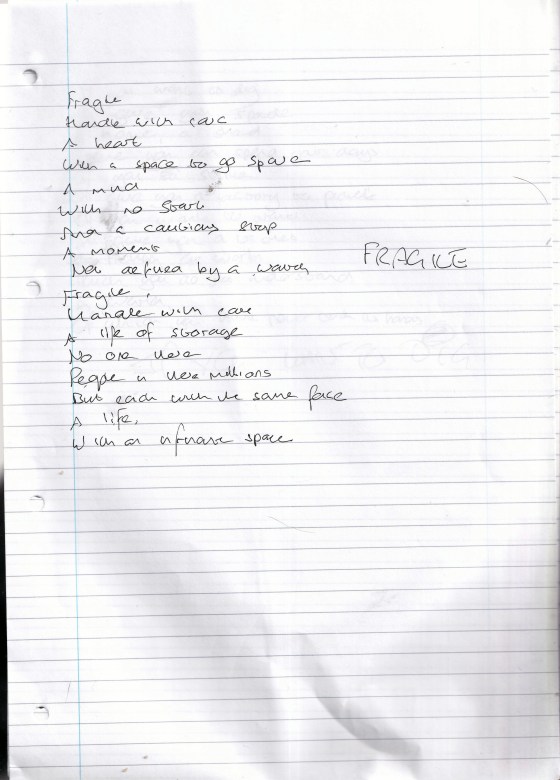 Fragile
Handle with care
A heart
With a space to go spare
A mind
With no start
And a cautious step
A moment
Not defined by a watch
Fragile,
Handle with care
A life of storage
No one here
People in their millions
But each with the same face
A life,
With an infinite space
FRAGILE